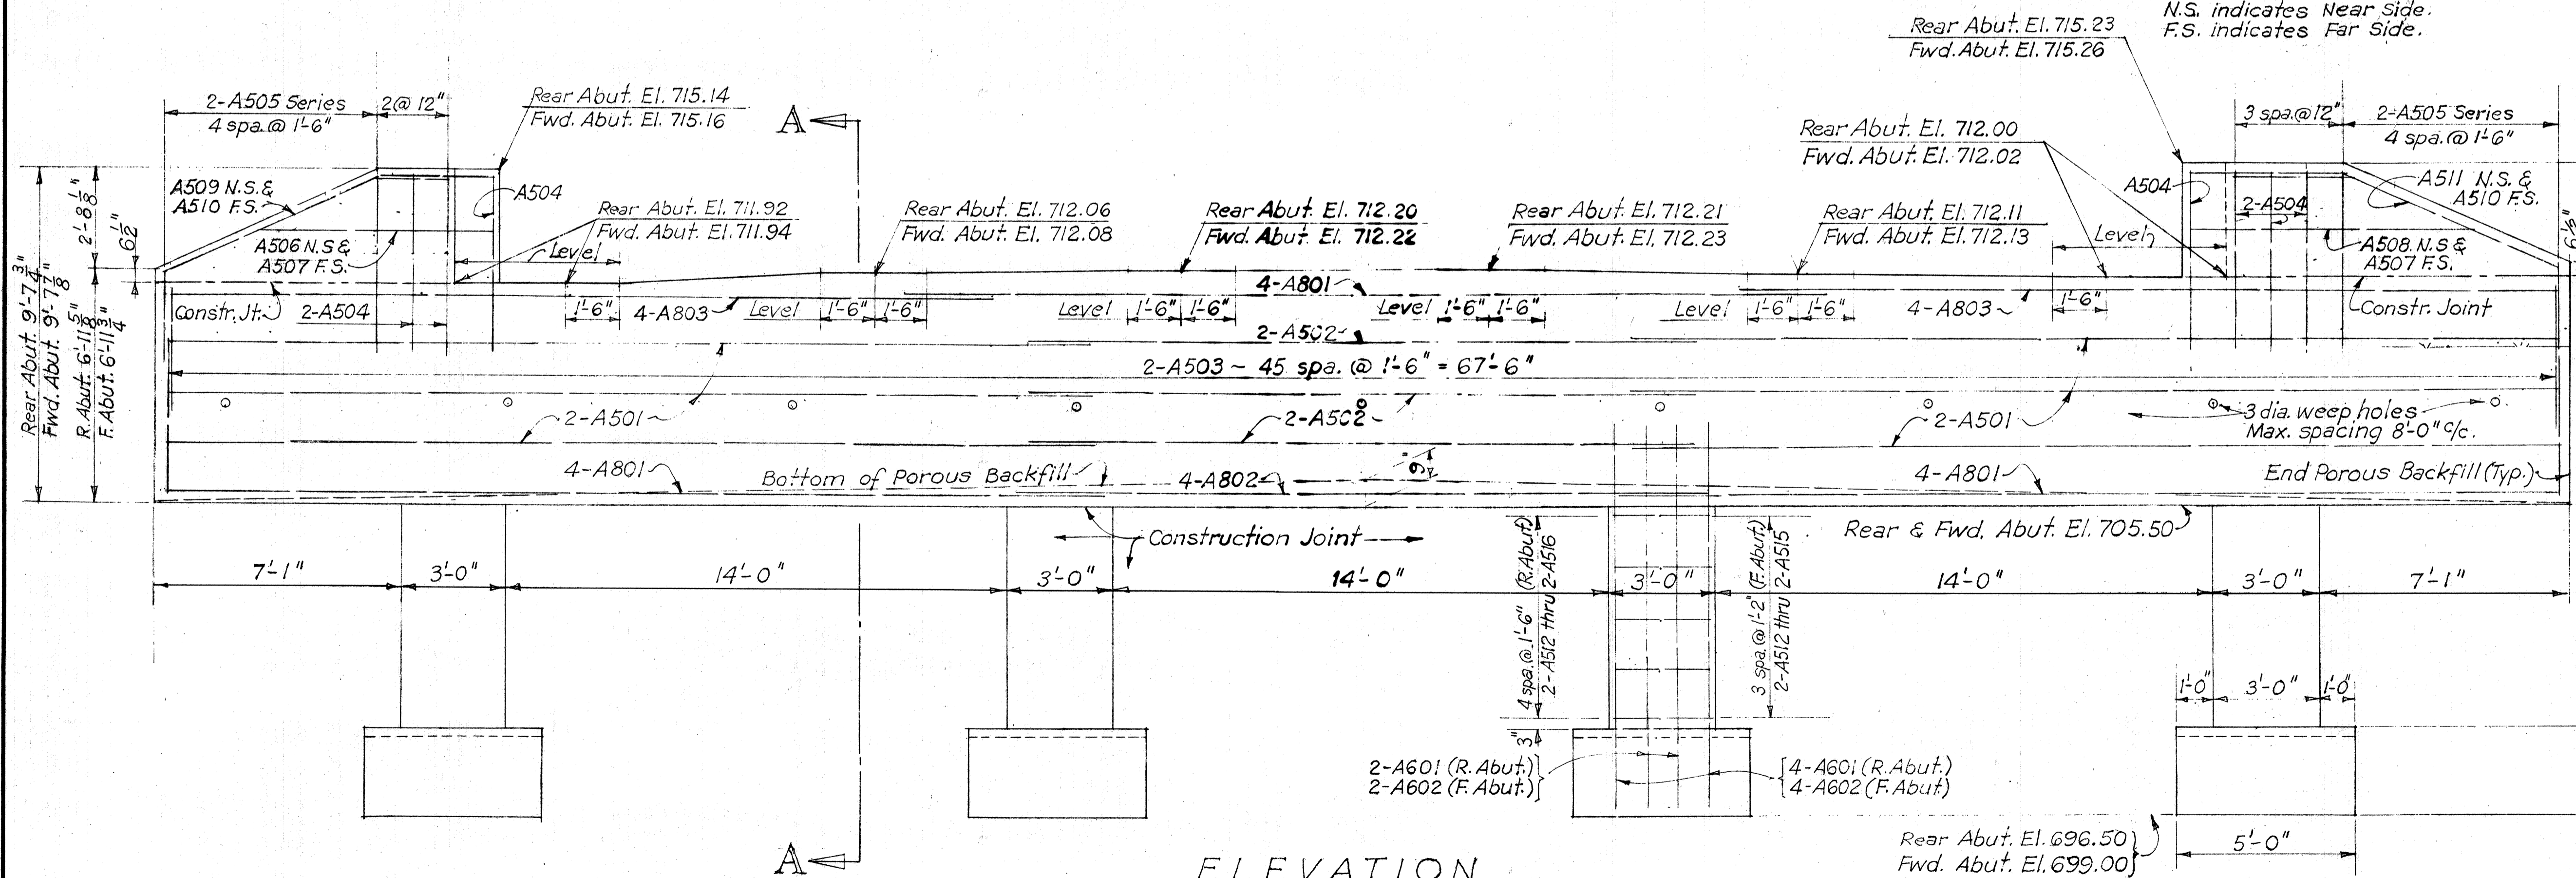 N.S. indicates Near Side.
F.S. indicates Far Side.
Rear Abut. El. 715.23
Fwd. Abut. El. 715.26
2-A505 Series
4 spa. @ 1'-6"
2 @ 12"
Rear Abut. El. 715.14
Fwd. Abut. El. 715.16
A
Rear Abut. El. 712.00
Fwd. Abut. El. 712.02
3 spa. @ 12"
2-A505 Series
4 spa. @ 1'-6"
A509 N.S. &
A510 F.S.
A504
A504
2-A504
A511 N.S. &
A510 F.S.
A506 N.S &
A507 F.S.
Rear Abut. El. 711.92
Fwd. Abut. El. 711.94
Level
Rear Abut. El. 712.06
Fwd. Abut. El. 712.08
Rear Abut. El. 712.20
Fwd. Abut. El. 712.22
Rear Abut. El. 712.21
Fwd. Abut. El. 712.23
Rear Abut. El. 712.11
Fwd. Abut. El. 712.13
Level
A508 N.S &
A507 F.S.
6½"
Rear Abut. 9'-7¾"
Fwd. Abut. 9'-7⅞"
R. Abut. 6'-11⅝"
F. Abut. 6'-11¾"
2'-8⅛"
6½"
Constr. Jt.
2-A504
1'-6"
4-A803
Level
1'-6"
1'-6"
Level
1'-6"
1'-6"
4-A801
Level
1'-6"
1'-6"
Level
1'-6"
1'-6"
4-A803
1'-6"
Constr. Joint
2-A502
2-A503 ~ 45 spa. @ 1'-6" = 67'-6"
2-A501
2-A502
2-A501
3 dia. weep holes
Max. spacing 8'-0" c/c.
4-A801
Bottom of Porous Backfill
4-A802
9"
4-A801
End Porous Backfill (Typ.)
Construction Joint
Rear & Fwd. Abut. El. 705.50
7'-1"
3'-0"
14'-0"
3'-0"
14'-0"
3'-0"
14'-0"
3'-0"
7'-1"
4 spa. @ 1'-6" (R. Abut)
2-A512 thru 2-A516
3 spa. @ 1'-2" (F. Abut)
2-A512 thru 2-A515
1'-0"
3'-0"
1'-0"
3"
2-A601 (R. Abut.)
2-A602 (F. Abut.)
4-A601 (R. Abut.)
4-A602 (F. Abut)
Rear Abut. El. 696.50
Fwd. Abut. El. 699.00
5'-0"
A
ELEVATION